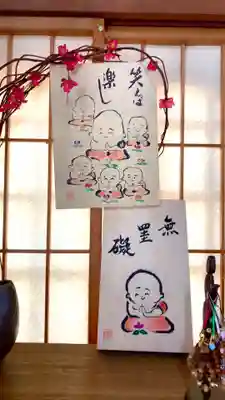 笑は
楽し
無罣礙